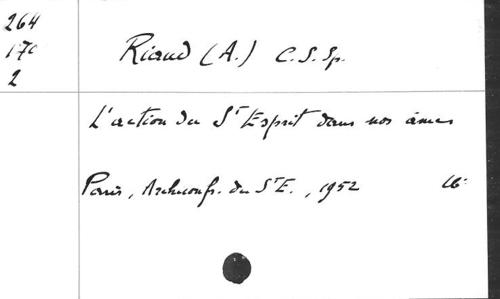 264
170
2
Riaud (A.) C.S.Sp.
L'action du St Esprit dans nos âmes
Paris, Archiconfr. du St E., 1952